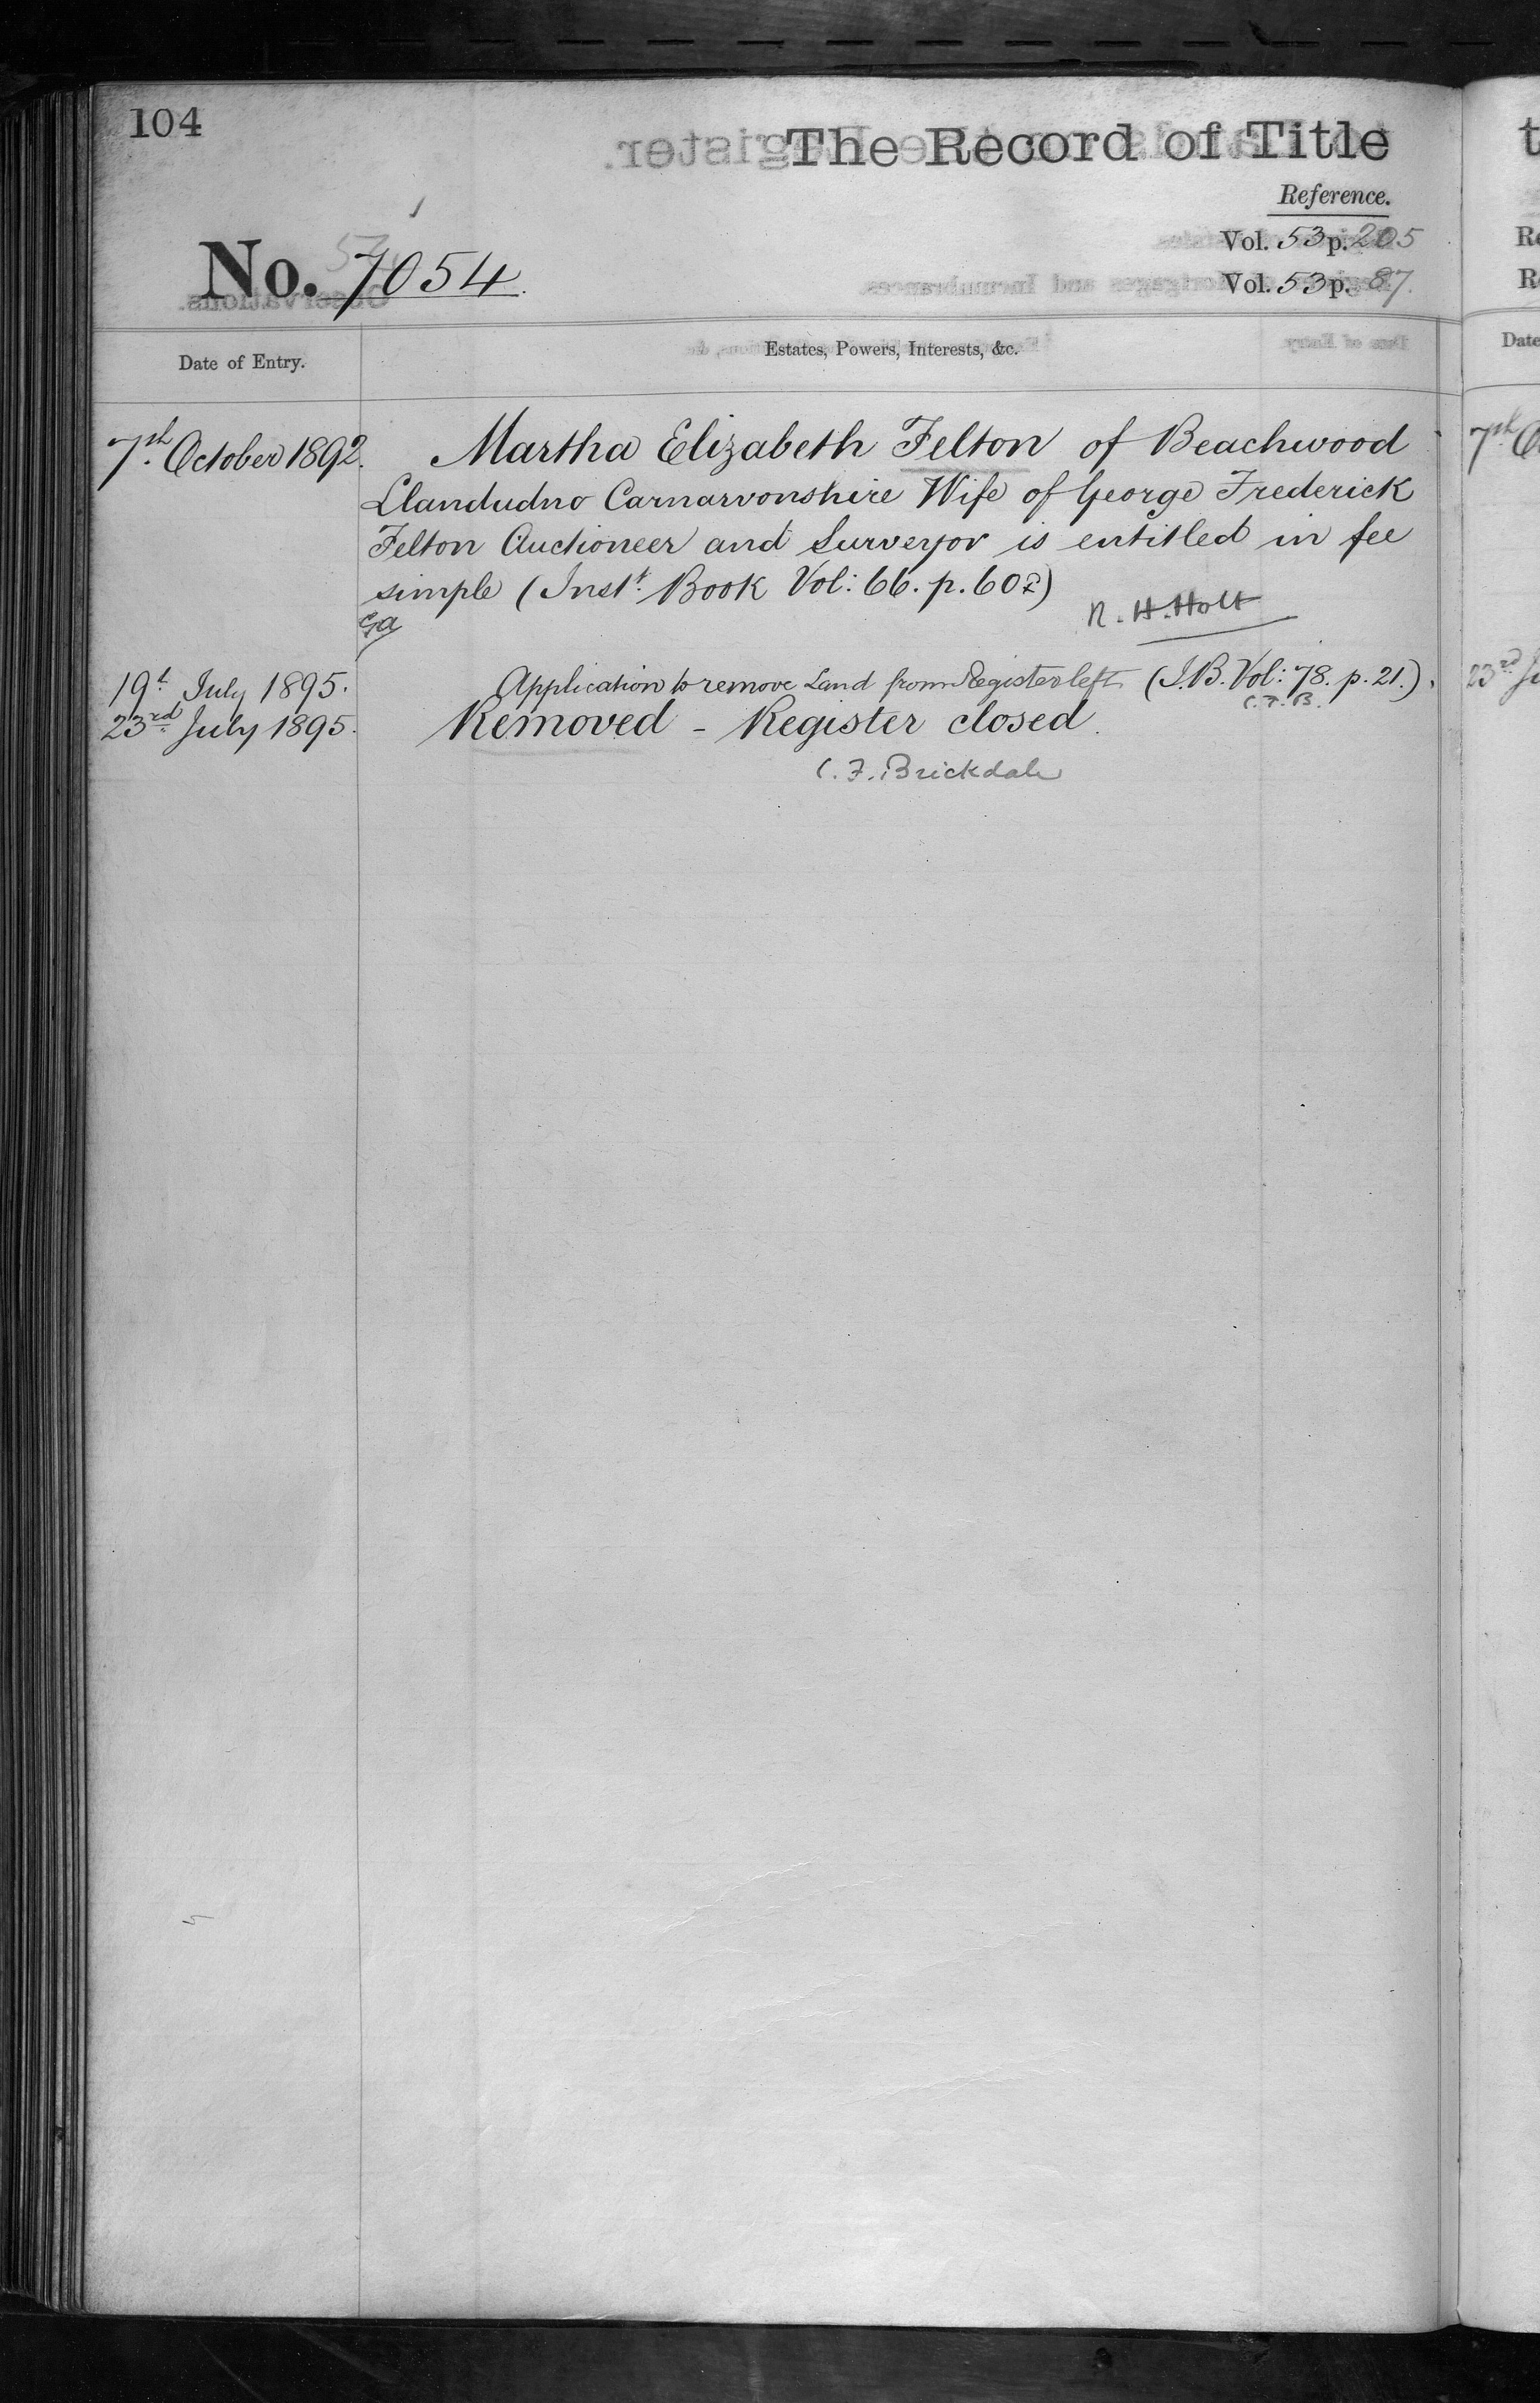 104
The Record of Title
Reference.
Vol. 53 p. 205
No. 7054.
Vol. 53 p. 87.
Date of Entry.
Estates, Powers, Interests, &c.
7th October 1892.
Martha Elizabeth Felton of Beachwood
Llandudno Carnarvonshire Wife of George Frederick
Felton Auctioneer and Surveyor is entitled in fee
simple (Inst. Book Vol: 66. p. 602)
R. H. Holt
19t July 1895.
Application to remove Land from Register left (I.B. Vol: 78. p. 21.).
C. F. B.
23rd July 1895.
Removed - Register closed.
C. F. Brickdale
Date
7th
23rd